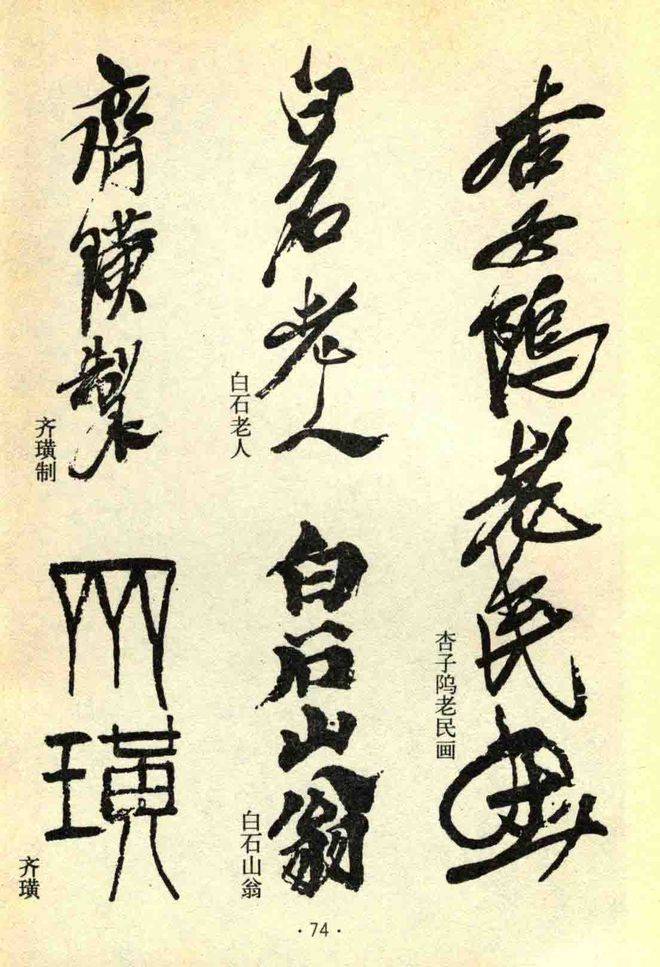 杏子隖老民畫
杏子隖老民画
白石老人
白石老人
白石山翁
白石山翁
齊璜製
齐璜制
齊璜
齐璜
·74·